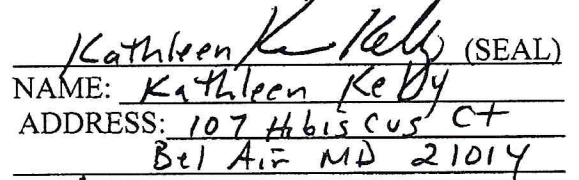 Kathleen K Kelly (SEAL)
NAME: Kathleen Kelly
ADDRESS: 107 Hibiscus Ct
Bel Air MD 21014